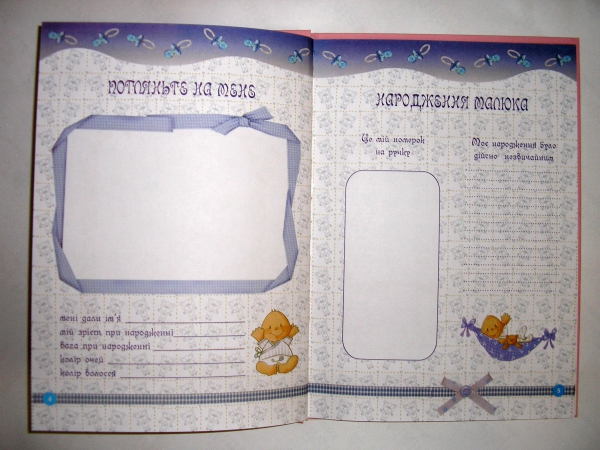 ПОГЛЯНЬТЕ НА МЕНЕ
мені дали ім'я
мій зріст при народженні
вага при народженні
колір очей
колір волосся
4
НАРОДЖЕННЯ МАЛЮКА
Це мій номерок
на ручку
Моє народження було
дійсно незвичайним
5